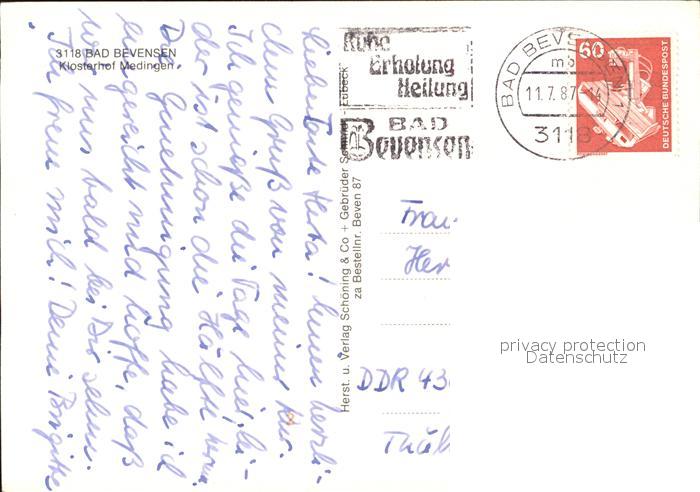 3118 BAD BEVENSEN
Klosterhof Medingen
Liebe Tante Herta! Einen herzli-
chen Gruß von meiner Kur.
Ich genieße die Tage hier, lei-
der ist schon die Hälfte herum.
Die Genehmigung habe ich
eingereicht und hoffe, daß
wir uns bald bei Dir sehen.
Ich freue mich! Deine Brigitte
Herst. u. Verlag Schöning & Co + Gebrüder Schmidt - Lübeck
za Bestellnr. Beven 87
Ruhe
Erholung
Heilung
BAD
Bevensen
BAD BEVENSEN 1
mb
11.7.87-14
3118
60
DEUTSCHE BUNDESPOST
Frau
Her
DDR 43
Thäl
privacy protection
Datenschutz